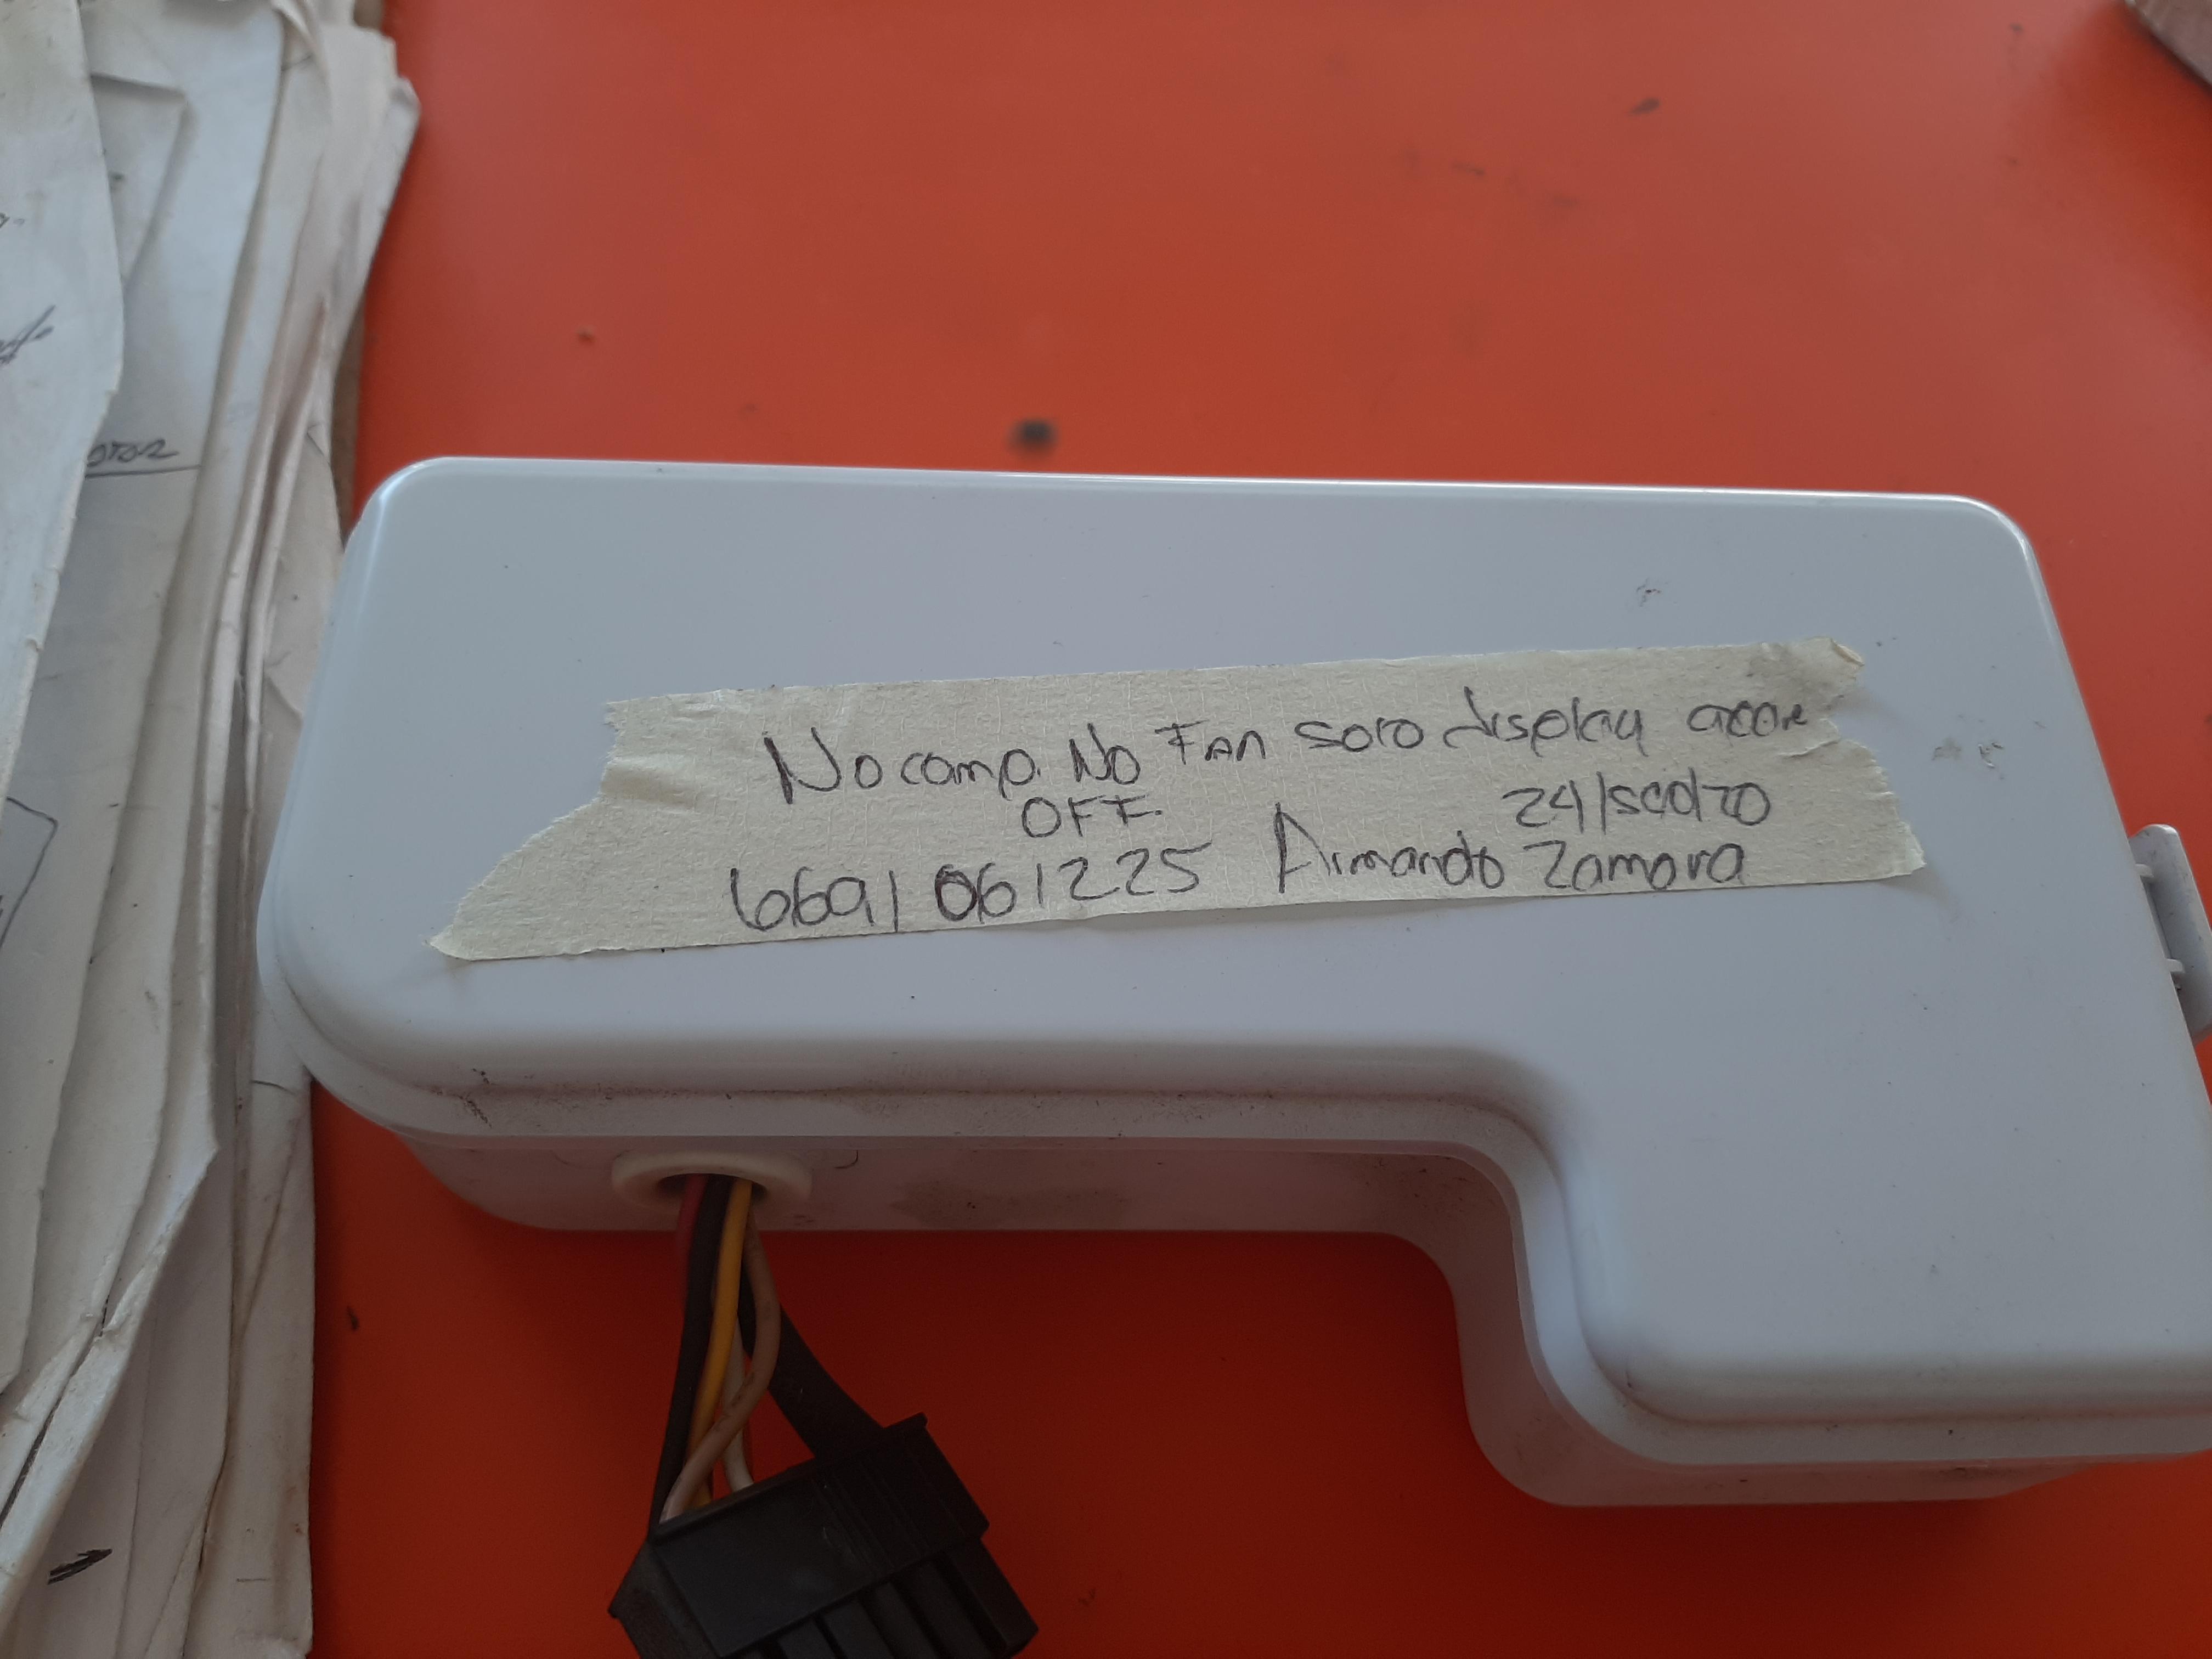 No comp. No Fan solo display
OFF. 24/sep/20
6691061225 Armando Zamora
otor